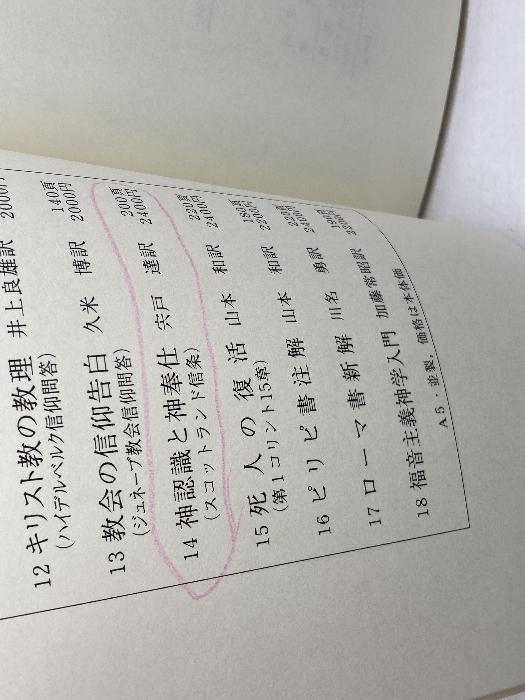 12 キリスト教の教理 井上良雄訳 2000円
(ハイデルベルク信仰問答)
13 教会の信仰告白 久米 博訳 140頁 2000円
(ジュネーブ教会信仰問答)
14 神認識と神奉仕 宍戸 達訳 200頁 2400円
(スコットランド信条)
15 死人の復活 山本 和訳 220頁 2400円
(第1コリント15章)
16 ピリピ書注解 山本 和訳 180頁 2200円
17 ローマ書新解 川名 勇訳 220頁 2400円
18 福音主義神学入門 加藤常昭訳 190頁 2200円
A5・並製. 価格は本体価